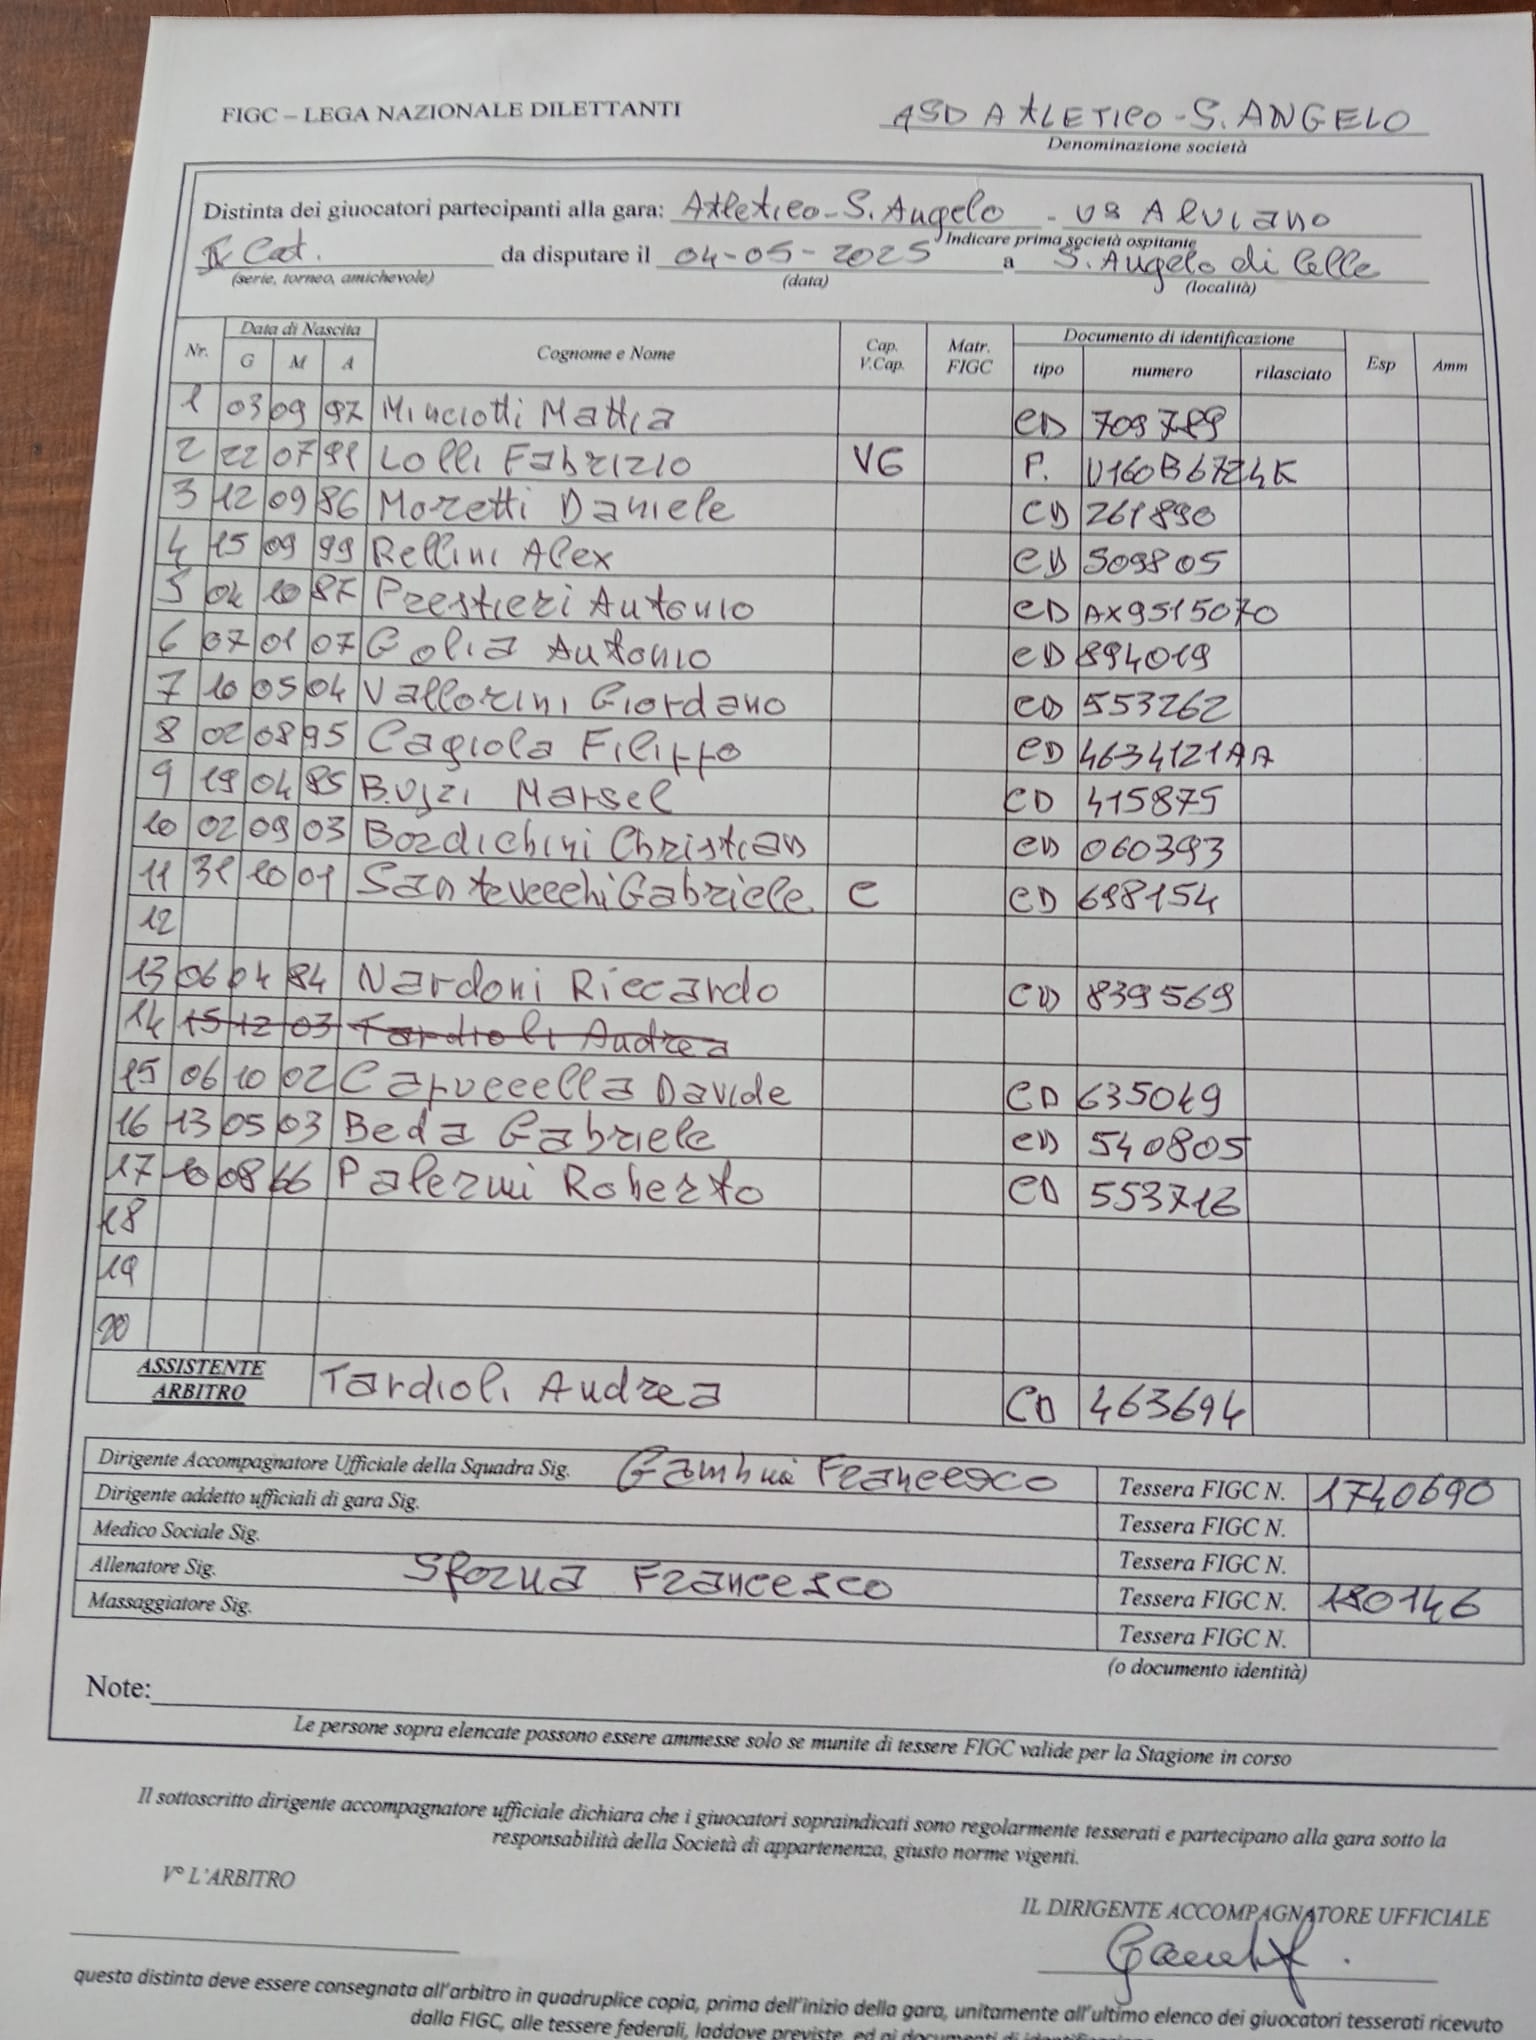 FIGC – LEGA NAZIONALE DILETTANTI
ASD ATLETICO - S. ANGELO
Denominazione società
Distinta dei giuocatori partecipanti alla gara: Atletico - S. Angelo - US Alviano
Indicare prima società ospitante
II Cat. da disputare il 04-05-2025 a S. Angelo di Celle
(serie, torneo, amichevole) (data) (località)
Nr. Data di Nascita Cognome e Nome Cap. V.Cap. Matr. FIGC Documento di identificazione Esp Amm
G M A tipo numero rilasciato
1 03 09 97 Minciotti Mattia CD 709789
2 22 07 91 Lolli Fabrizio VC P. U160B6724K
3 12 09 86 Moretti Daniele CD 261890
4 15 09 99 Rellini Alex CD 509805
5 04 10 87 Prestieri Antonio CD AX9515070
6 07 01 07 Golia Antonio CD 894019
7 10 05 04 Vallorini Giordano CD 553262
8 02 08 95 Cagiola Filippo CD 4634121AA
9 19 04 85 Marsel CD 415875
10 02 09 03 Bordichini Christian CD 060393
11 31 10 01 Santevecchi Gabriele C CD 698154
12
13 06 04 84 Nardoni Riccardo CD 839569
14 15 12 03 Tardioli Andrea
15 06 10 02 Capuccella Davide CD 635049
16 13 05 03 Beda Gabriele CD 540805
17 10 08 66 Palermi Roberto CD 553716
18
19
20
ASSISTENTE ARBITRO Tardioli Andrea CD 463694
Dirigente Accompagnatore Ufficiale della Squadra Sig. Francesco Tessera FIGC N. 1740690
Dirigente addetto ufficiali di gara Sig. Tessera FIGC N.
Medico Sociale Sig. Tessera FIGC N.
Allenatore Sig. Sforna Francesco Tessera FIGC N. 180146
Massaggiatore Sig. Tessera FIGC N.
(o documento identità)
Note:
Le persone sopra elencate possono essere ammesse solo se munite di tessere FIGC valide per la Stagione in corso
Il sottoscritto dirigente accompagnatore ufficiale dichiara che i giuocatori sopraindicati sono regolarmente tesserati e partecipano alla gara sotto la
responsabilità della Società di appartenenza, giusto norme vigenti.
V° L'ARBITRO
IL DIRIGENTE ACCOMPAGNATORE UFFICIALE
questa distinta deve essere consegnata all'arbitro in quadruplice copia, prima dell'inizio della gara, unitamente all'ultimo elenco dei giuocatori tesserati ricevuto
dalla FIGC, alle tessere federali, laddove previste, ed ai documenti di identificazione